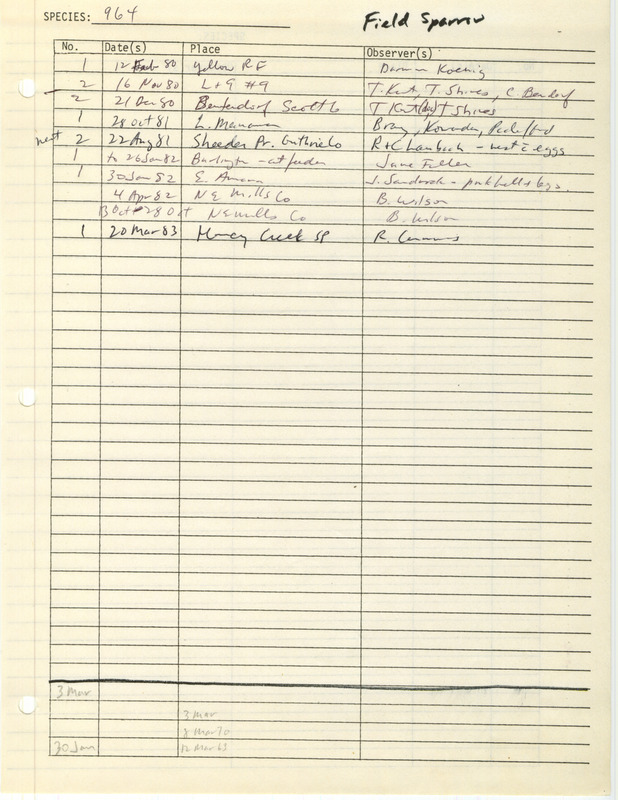 SPECIES: 964
Field Sparrow
No. Date(s) Place Observer(s)
1 12 Feb 80 Yellow R F Darwin Koenig
2 16 Nov 80 L+9 #9 T. Kent, T. Shires, C. Bendorf
2 21 Dec 80 Scott Co T Kent T Shires
1 28 Oct 81 L. Manawa
nest 2 22 Aug 81 Sheeder Pr. Guthrie Co R+C - nest c eggs
1 to 26 Jan 82 Burlington - at feeder Jane Fuller
1 30 Jan 82 E. Amana J. Sandrock - pink bill + legs
4 Apr 82 NE Mills Co B. Wilson
28 Oct NE Mills Co B. Wilson
1 20 Mar 83 Creek SP R. Cummins
3 Mar
3 Mar
8 Mar 70
30 Jan 12 Mar 63